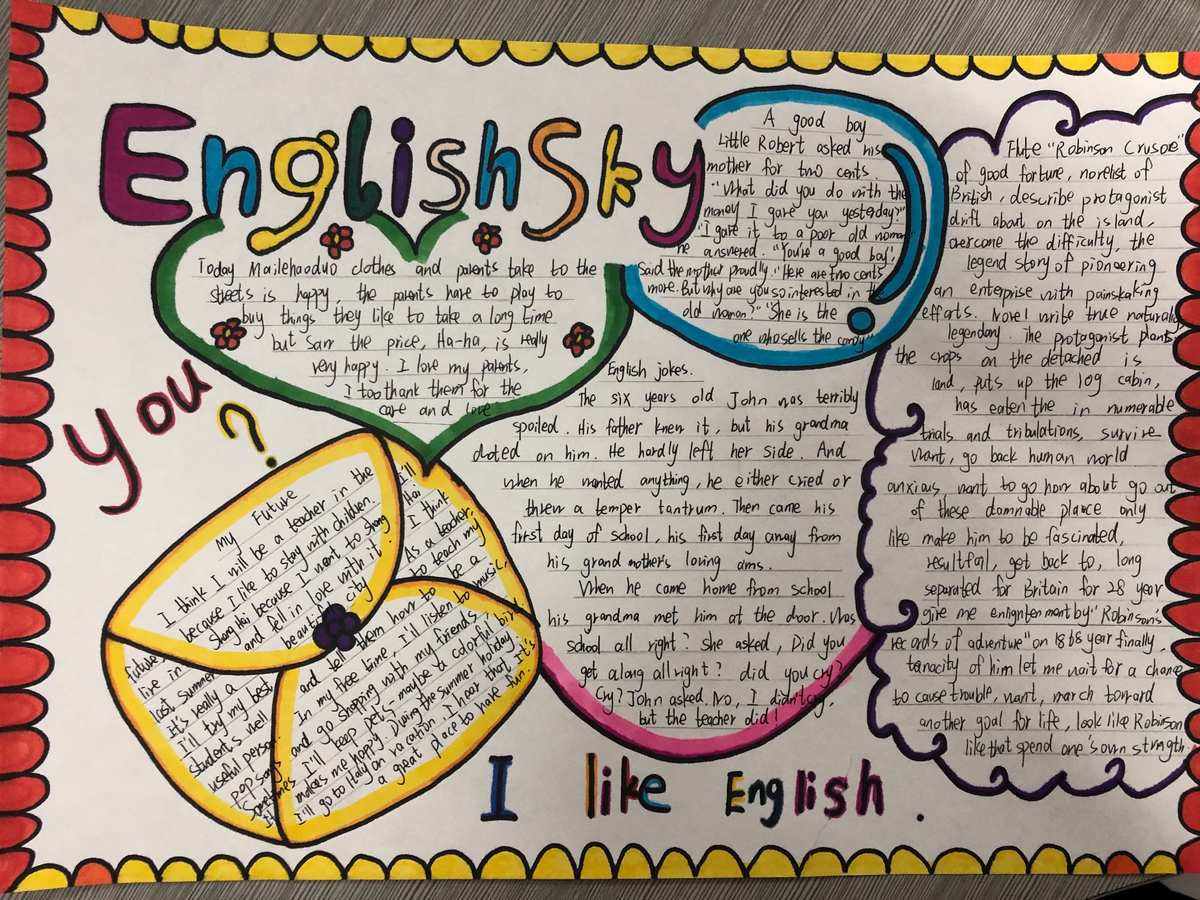 English Sky
Today Mailehaoduo clothes and parents take to the
streets is happy, the parents have to play to
buy things they like to take a long time
but sam the price, Ha-ha, is really
very happy. I love my parents,
I too thank them for the
care and love
A good boy
Little Robert asked his
mother for two cents.
"What did you do with the
money I gave you yesterday?"
"I gave it to a poor old woman"
he answered. "You're a good boy",
Said the mother proudly. "Here are two cents
more. But why are you so interested in the
old woman?" "She is the
one who sells the candy"
Flute "Robinson Crusoe"
of good forture, novelist of
British, describe protagonist
drift about on the island,
overcome the difficulty, the
legend story of pioneering
an enterprise with painskaking
efforts. Novel write true naturally
legendary. The protagonist plants
the crops on the detached is
land, puts up the log cabin,
has eaten the in numerable
trials and tribulations, survive
want, go back human world
anxious want to go how about go out
of these damnable plawce only
like make him to be fascinated,
resultfal, get back to, long
separated for Britain for 28 year
give me enlightenment by "Robinson's
records of adventure" on 1868 year finally,
tanacity of him let me wait for a chance
to cause trouble, want, march toward
another goal for life, look like Robinson
like that spend one's own strength
you
?
English jokes.
The six years old John was terribly
spoiled. His father knew it, but his grandma
doted on him. He hardly left her side. And
when he wanted anything, he either cried or
threw a temper tantrum. Then came his
first day of school, his first day away from
his grand mother's loving ams.
When he came home from school
his grandma met him at the door. Was
school all right? She asked, Did you
get along all right? did you cry?
Cry? John asked. No, I didn't cry,
but the teacher did!
My Future
I think I will be a teacher in the
because I like to stay with children.
Shang Hai because I want to shang
and fell in love with it
beautiful city
I'll
Hai
I think
As a teacher,
to teach my
be a
tell them how to
and
In my free time, I'll listen to music,
and go shopping with my friends.
I'll keep pets maybe a colorful bird.
makes me happy. During the summer holiday
I'll go to Italy on vacation. I hear that It's
a great place to have fun.
future
live in
last summer
It's really a
I'll try my best
student's well
useful person
pop songs
Sometimes
It
I like English.